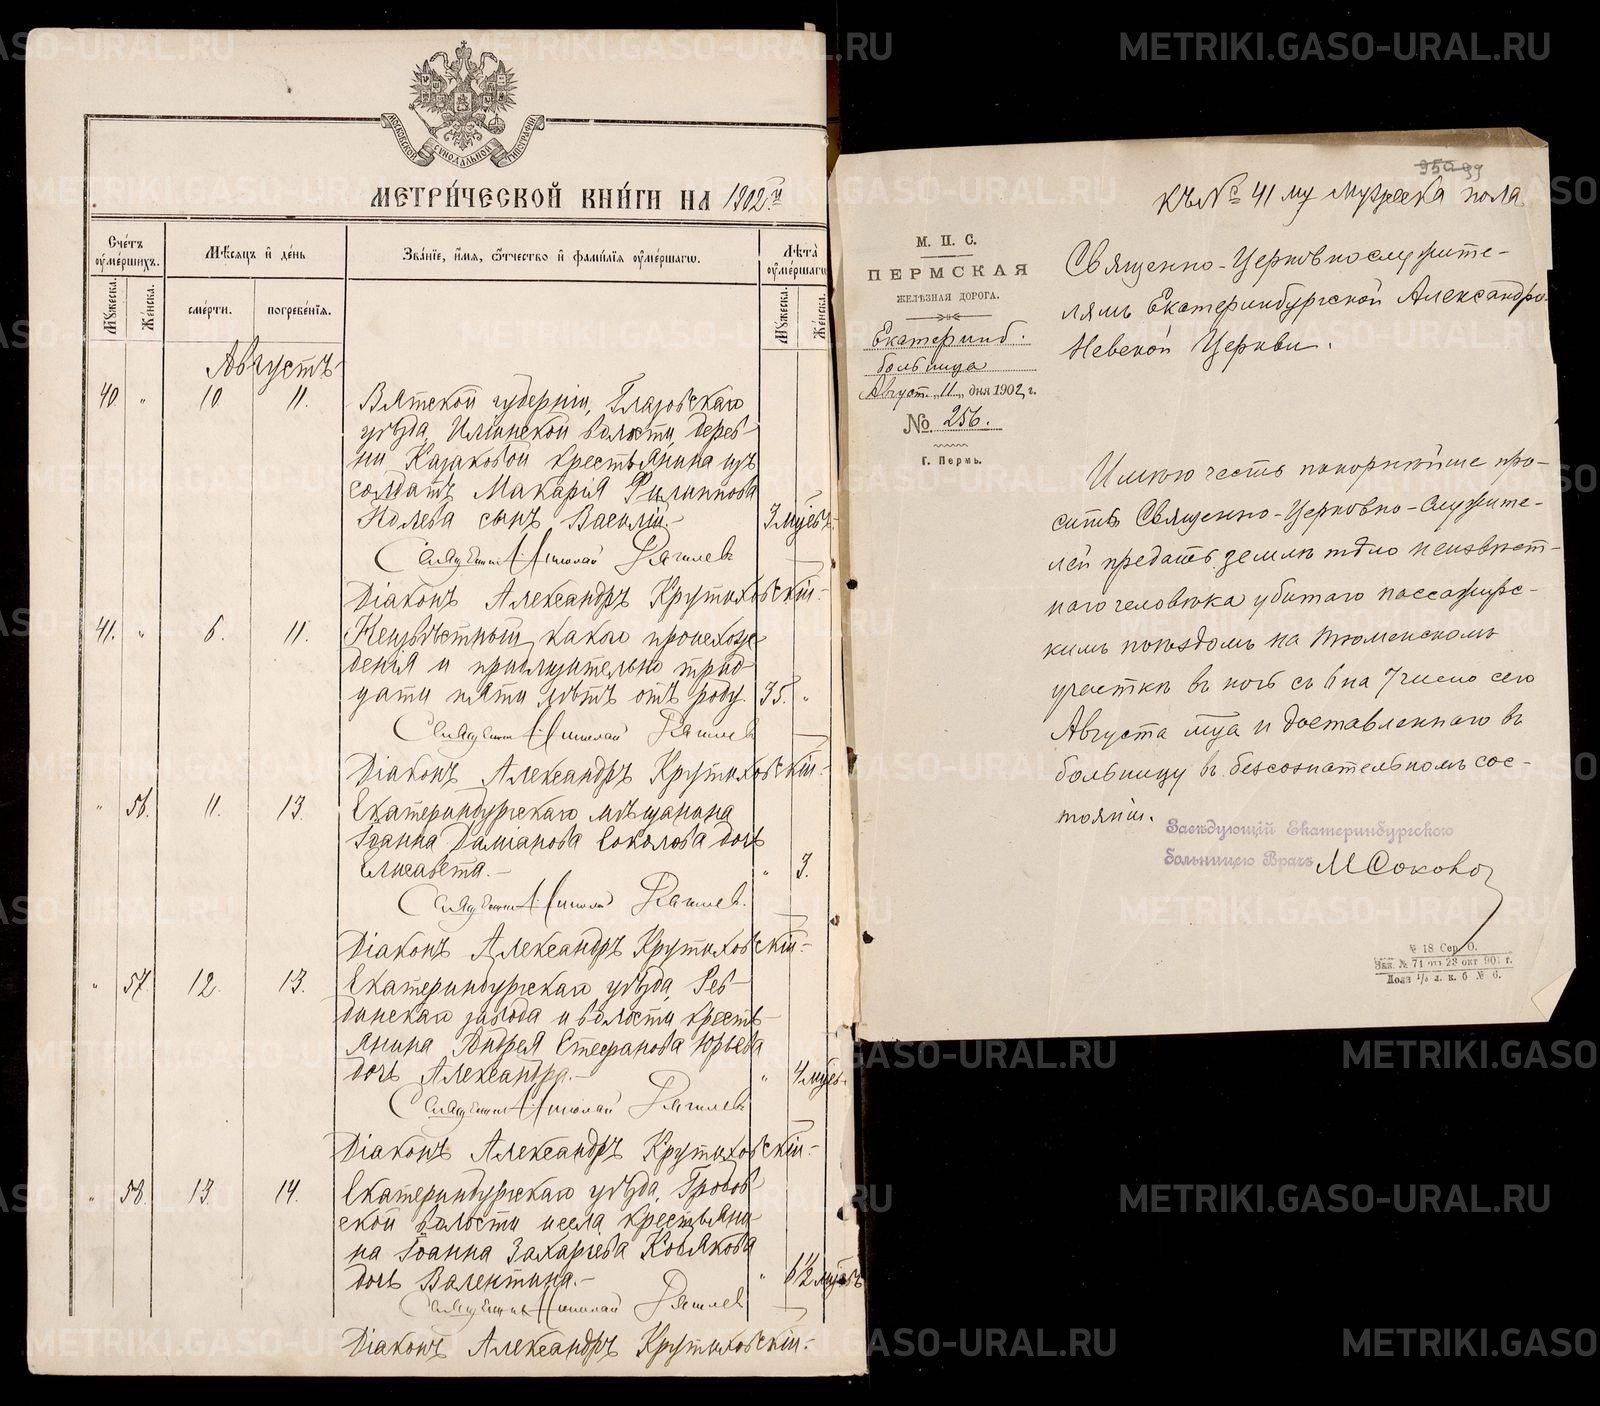 МОСКОВСКОЙ СѴНОДАЛЬНОЙ ТИПОГРАФІИ
МЕТРИ́ЧЕСКОЙ КНИ́ГИ НА 1902 й
Сче́тъ оу́ме́ршихъ.
Мѣсяцъ и день
Зва́нїе, и́мя, ѻ́тчество и фами́лїя оу́ме́ршаго.
Лѣта̀ оу́ме́ршагѡ
Мꙋ́жеска.
Же́нска.
сме́рти.
погребе́нїя.
Мꙋ́жеска.
Же́нска.
Августъ
40. " 10. 11. Вятской губерніи, Глазовскаго
уѣзда, Илинской волости, дерев-
ни Казаковой крестьянина изъ
солдатъ Макарія Филиппова
сынъ Василій.- 3 мцевъ
Священникъ Николай
Діаконъ Александръ Крутиховскій.-
41. " 6. 11. Неизвѣстный какого происхож-
денія и приблизительно трид-
цати пяти лѣтъ отъ роду. 35. "
Священникъ Николай
Діаконъ Александръ Крутиховскій.-
" 56. 11. 13. Екатеринбургскаго мѣщанина
Іоанна Даміанова Соколова дочь
Елисавета.- " 3.
Священникъ Николай
Діаконъ Александръ Крутиховскій.-
" 57. 12. 13. Екатеринбургскаго уѣзда, Рев-
динскаго завода и волости крестъ-
янина Андрея Стефанова Юрьева
дочь Александра.- " 4 мцев.
Священникъ Николай
Діаконъ Александръ Крутиховскій.-
" 58. 13. 14. Екатеринбургскаго уѣзда, Гробов-
ской волости и села крестьяни-
на Іоанна Захаріева Ковякова
дочь Валентина.- " 6 1/2 мцевъ
Священникъ Николай
Діаконъ Александръ Крутиховскій.-
99
Къ № 41 му мужеска пола
М. П. С.
ПЕРМСКАЯ
ЖЕЛѢЗНАЯ ДОРОГА.
Екатеринб.
больница
Август. „11„ дня 1902 г.
No. 256.
Г. Пермь.
Священно-Церковнослужите-
лямъ Екатеринбургской Александро-
Невской Церкви.
Имѣю честь покорнѣйше про-
сить Священно-Церковно-служите-
лей предать землѣ тѣло неизвѣст-
наго человѣка убитаго пассажирс-
кимъ поѣздомъ на Тюменскомъ
участкѣ въ ночь съ 6 на 7 число сего
Августа мца и доставленнаго въ
больницу въ безсознательномъ сос-
тояніи.
Завѣдующій Екатеринбургскою
больницею Врачъ М Соколов
№ 18 Сер. О.
Зак. № 71 отъ 23 окт 901 г.
METRIKI.GASO-URAL.RU